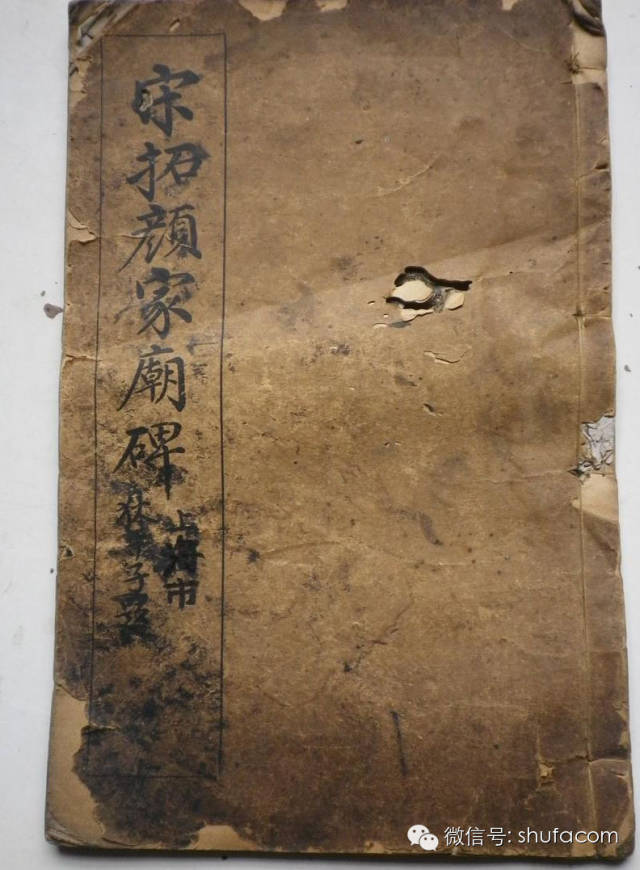 宋拓顔家廟碑
上海市
狄平子
微信号: shufacom